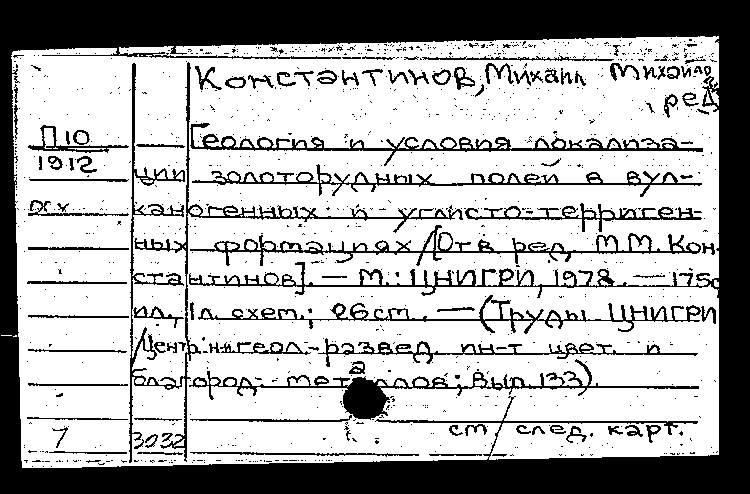 Константинов, Михаил Михайло
ред
П10
1912
Геология и условия локализа-
ции золоторудных полей в вул-
каногенных и углисто-терриген-
ных формациях / [Отв ред. М.М. Кон-
стантинов]. — М.: ЦНИГРИ, 1978. — 175с
ил., 1л. схем.; 26см. — (Труды ЦНИГРИ
/Центр. н.-и геол.-развед. ин-т цвет. и
благород. металлов; Вып. 133).
см след. карт.
7
3032